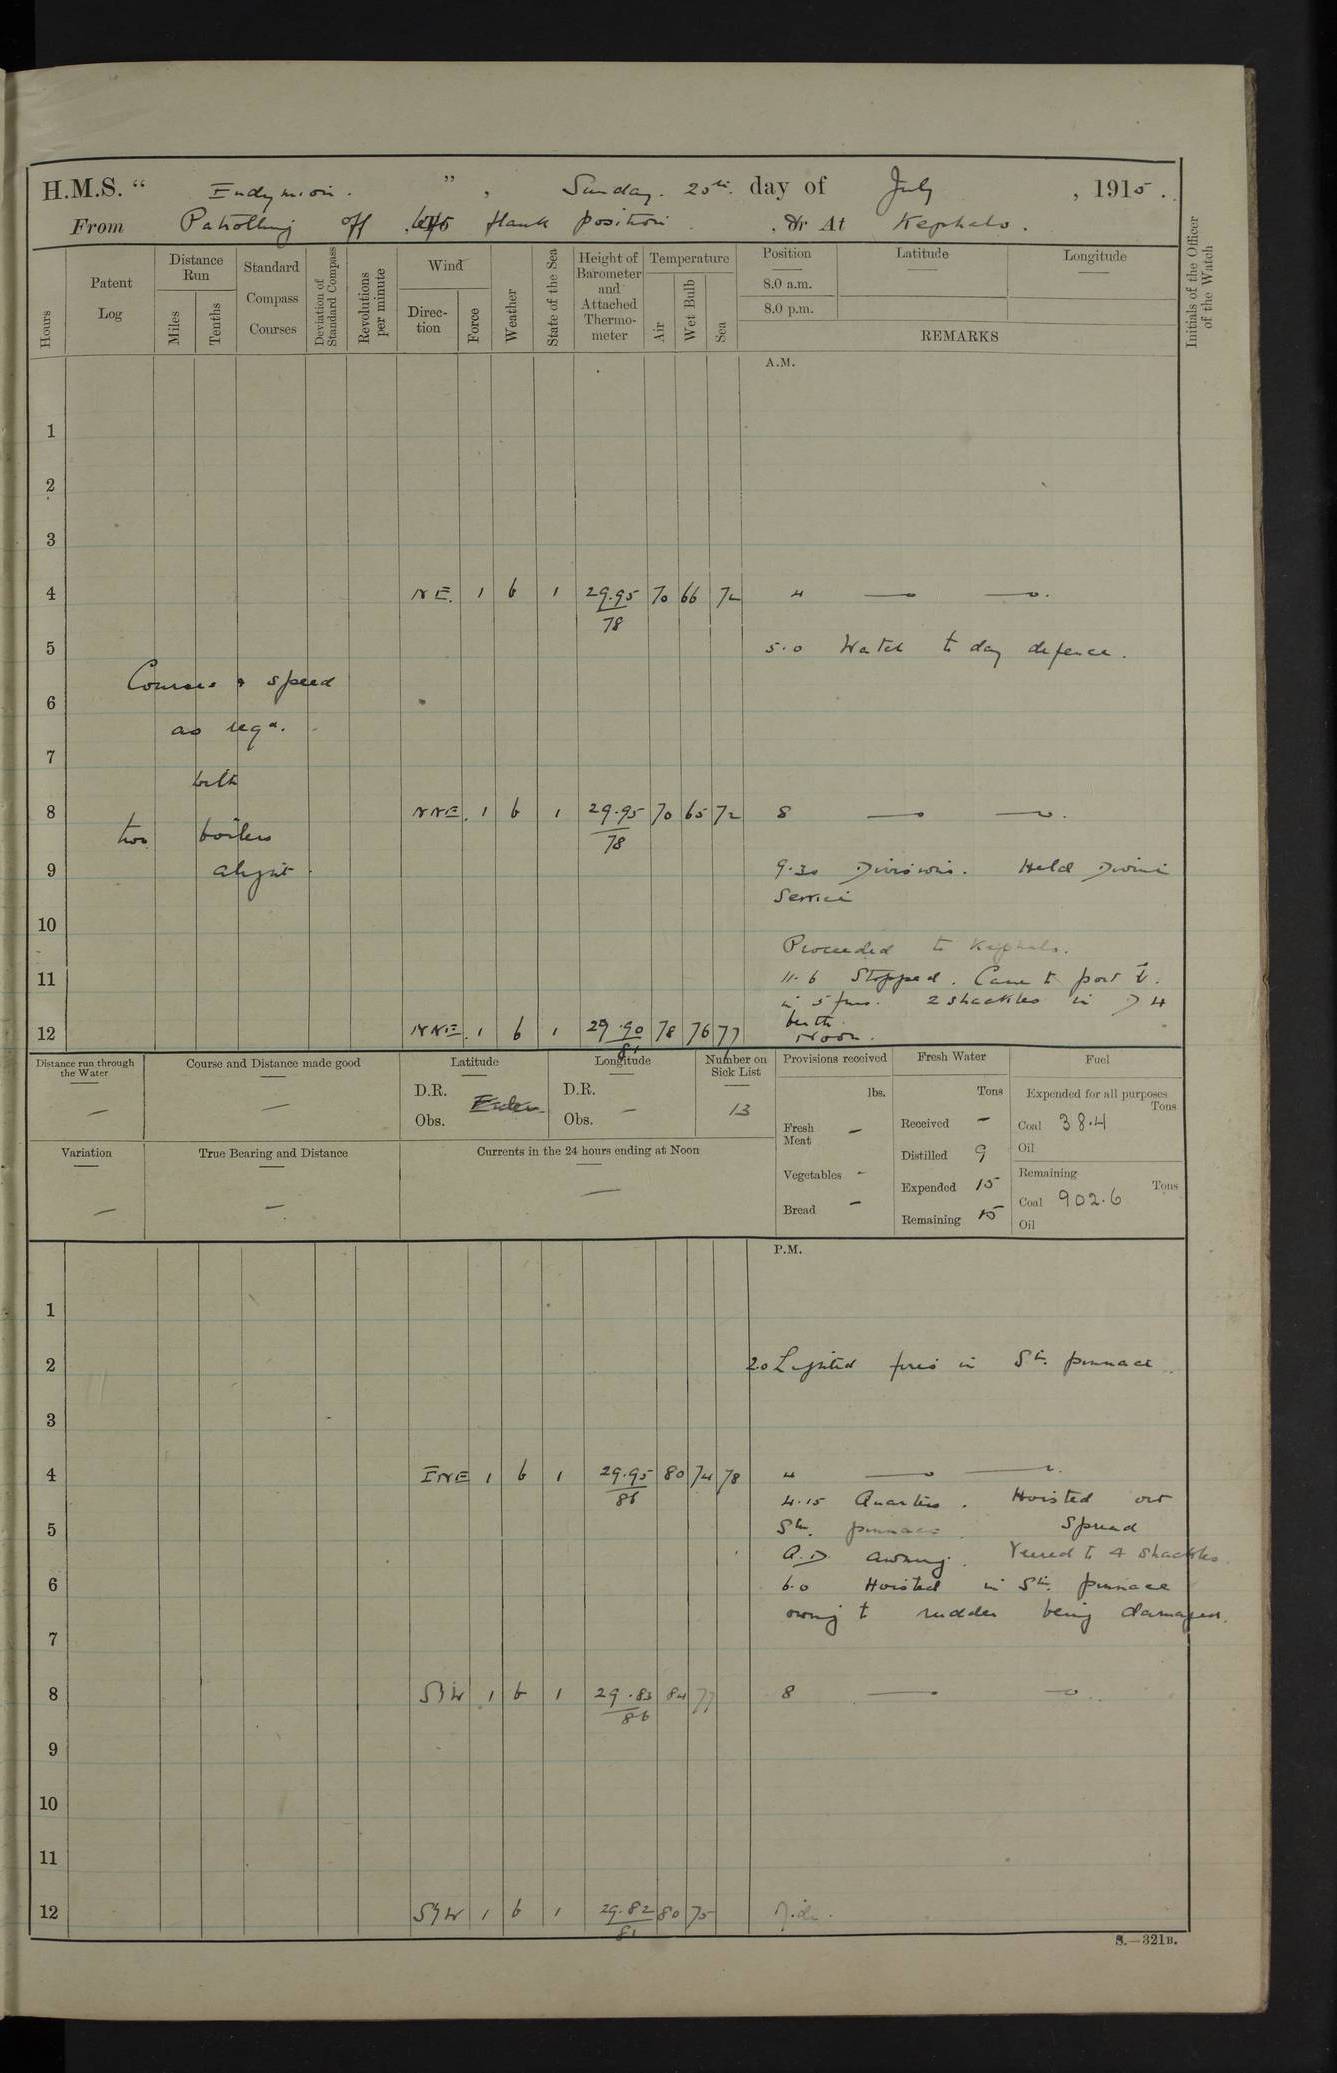 H.M.S. " Endymion. ", Sunday. 25th. day of July, 1915.
From Patrolling off left flank position. , Or At Kephalo.
Hours
Patent Log
Distance Run
Miles
Tenths
Standard Compass Courses
Deviation of Standard Compass
Revolutions per minute
Wind
Direction
Force
Weather
State of the Sea
Height of Barometer and Attached Thermometer
Temperature
Air
Wet Bulb
Sea
Position
8.0 a.m.
8.0 p.m.
Latitude
Longitude
REMARKS
Initials of the Officer of the Watch
A.M.
1
2
3
4 NE. 1 b 1 29.95 70 66 72 4
78
5 5.0 Watch to day defence.
Courses & speed
6
as reqd.
7
with
8 NNE. 1 b 1 29.95 70 65 72 8
two boilers 78
9 alight. 9.30 Divisions. Held Divine
Service
10
Proceeded to Kephalo.
11 11.6 Stopped. Came to port
in 5 fms. 2 shackles in D 4
berth.
12 NNE. 1 b 1 29.90 78 76 77 Noon.
81
Distance run through the Water
Course and Distance made good
Latitude
D.R.
Obs.
Longitude
D.R.
Obs. –
Number on Sick List
13
Provisions received
lbs.
Fresh Meat –
Vegetables –
Bread –
Fresh Water
Tons
Received –
Distilled 9
Expended 15
Remaining 15
Fuel
Expended for all purposes
Tons
Coal 38.4
Oil
Remaining
Tons
Coal 902.6
Oil
Variation
True Bearing and Distance
Currents in the 24 hours ending at Noon
P.M.
1
2 2.0 Lighted fires in Stm. pinnace.
3
4 ENE 1 b 1 29.95 80 74 78 4
86
4.15 Quarters. Hoisted out
5 Stm. pinnace. Spread
A.D awning. Veered to 4 shackles.
6 6.0 Hoisted in Stm. pinnace
owing to rudder being damaged.
7
8 SW 1 b 1 29.83 84 77 8
86
9
10
11
12 SW 1 b 1 29.82 80 75 Mid.
81
S.—321B.